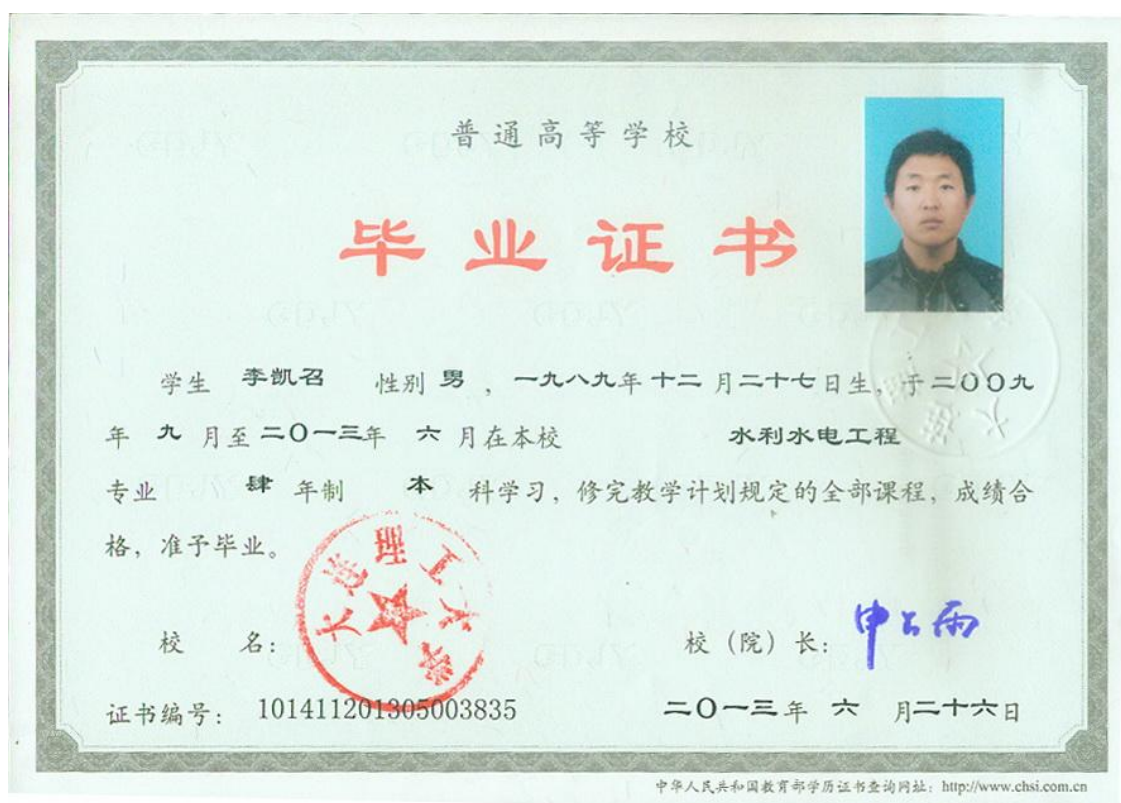 普通高等学校
毕业证书
学生 李凯召 性别 男 ，一九八九年 十二 月二十七日生，于二〇〇九
年 九 月至 二〇一三年 六 月在本校 水利水电工程
专业 肆 年制 本 科学习，修完教学计划规定的全部课程，成绩合
格，准予毕业。
大连理工大学
校 名：
校（院）长：
证书编号： 101411201305003835
二〇一三年 六 月二十六日
中华人民共和国教育部学历证书查询网址：http://www.chsi.com.cn